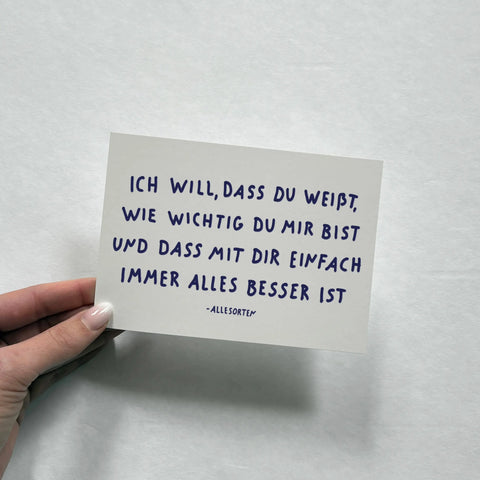 ICH WILL, DASS DU WEIßT,
WIE WICHTIG DU MIR BIST
UND DASS MIT DIR EINFACH
IMMER ALLES BESSER IST
-ALLESORTEN